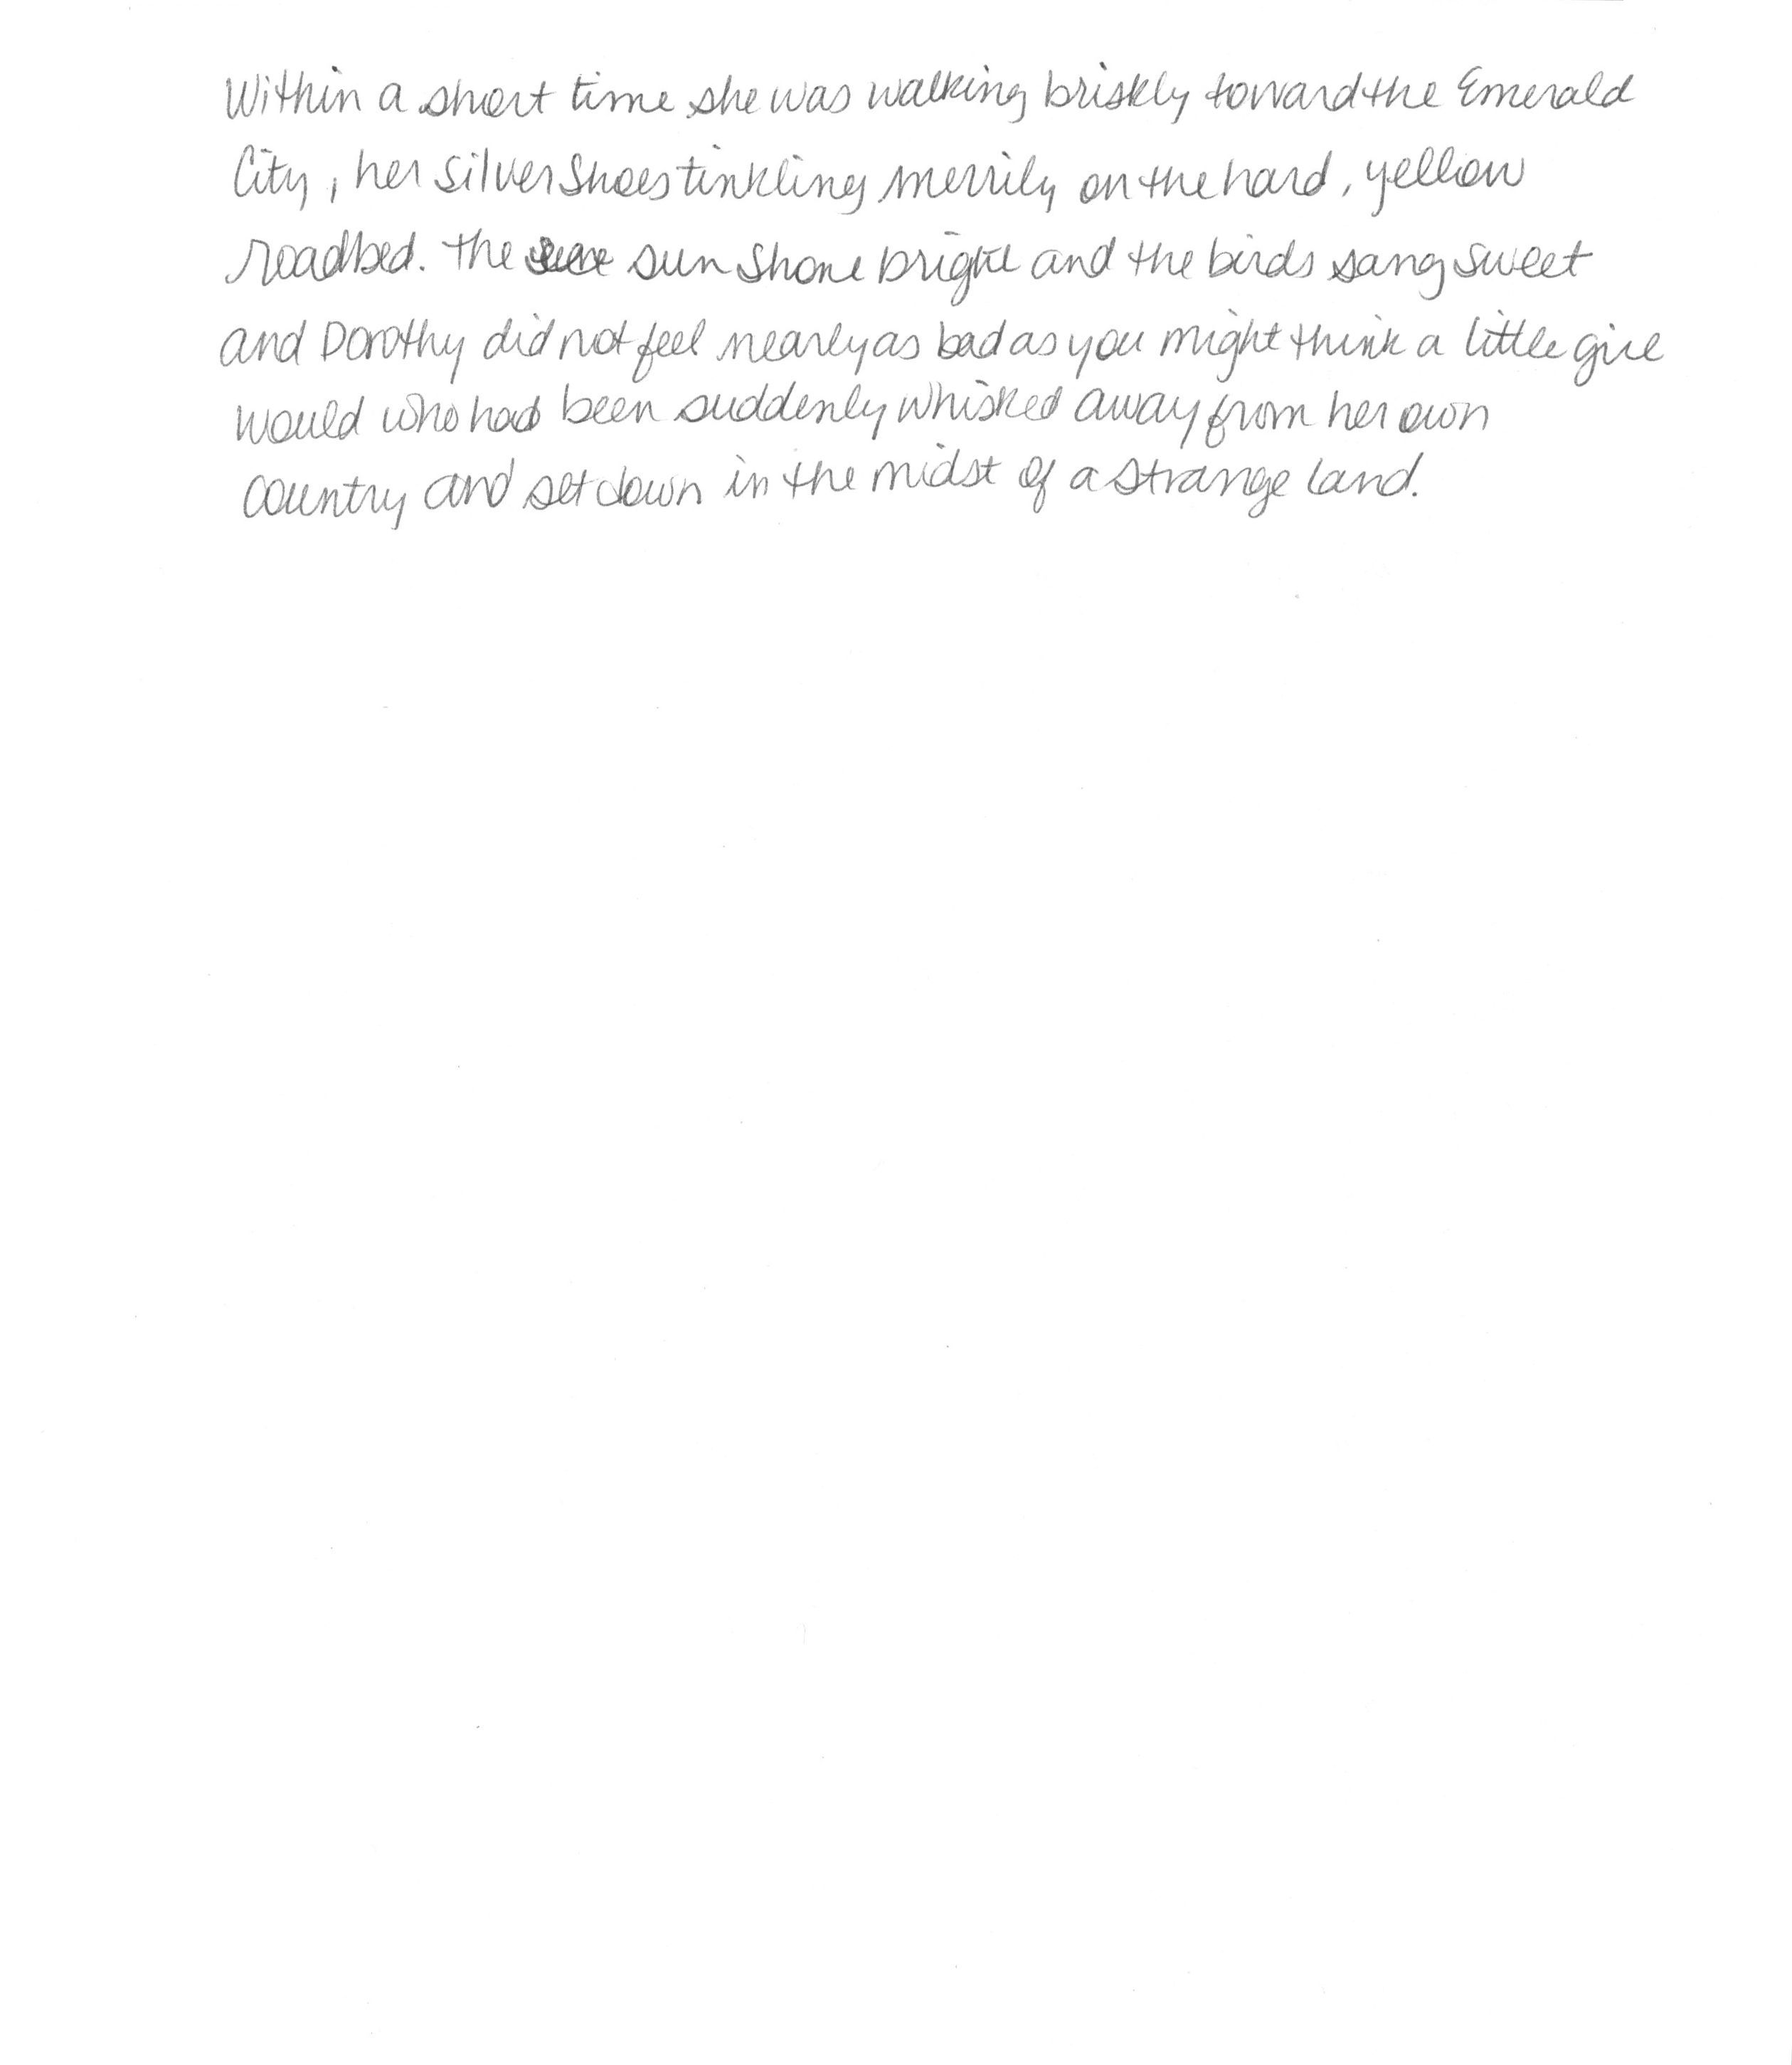 Within a short time she was walking briskly toward the Emerald
City, her silver shoes tinkling merrily on the hard, yellow
roadbed. The sun shone bright and the birds sang sweet
and Dorothy did not feel nearly as bad as you might think a little girl
would who had been suddenly whisked away from her own
country and set down in the midst of a strange land.